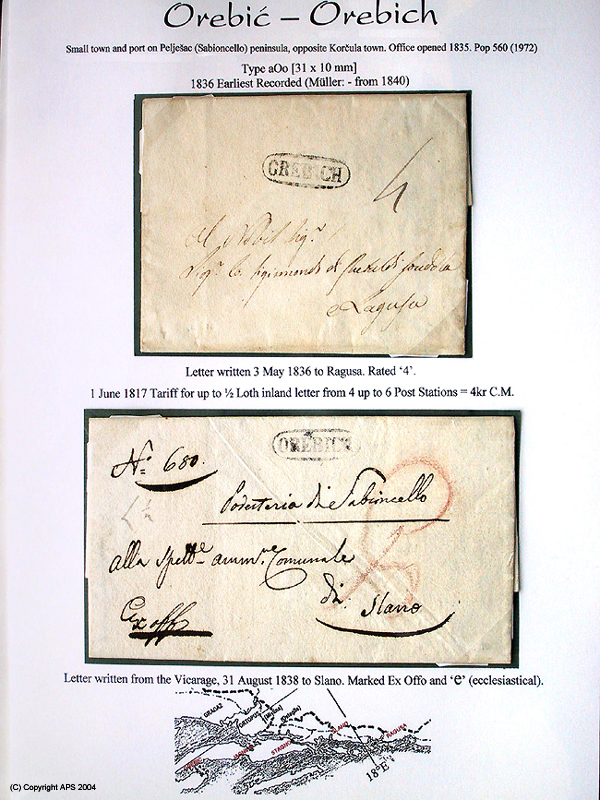 Orebić – Orebich
Small town and port on Pelješac (Sabioncello) peninsula, opposite Korčula town. Office opened 1835. Pop 560 (1972)
Type aOo [31 x 10 mm]
1836 Earliest Recorded (Müller: - from 1840)
OREBICH
4
Al Nobil Sigr
Ragusa
Letter written 3 May 1836 to Ragusa. Rated ‘4’.
1 June 1817 Tariff for up to ½ Loth inland letter from 4 up to 6 Post Stations = 4kr C.M.
OREBICH
No 680.
Podesteria di Sabioncello
alla Spette ammne Comunale
di Slano
Ex offo
Letter written from the Vicarage, 31 August 1838 to Slano. Marked Ex Offo and ‘e’ (ecclesiastical).
GRADAZ
FORTOPUS
SLANO
RAGUSA
STAGNO
18°E
(C) Copyright APS 2004